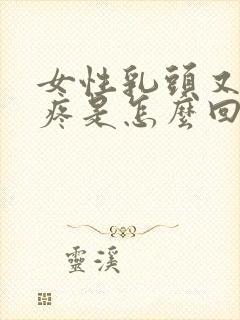 女性乳頭又
疼是怎麼回
靈溪